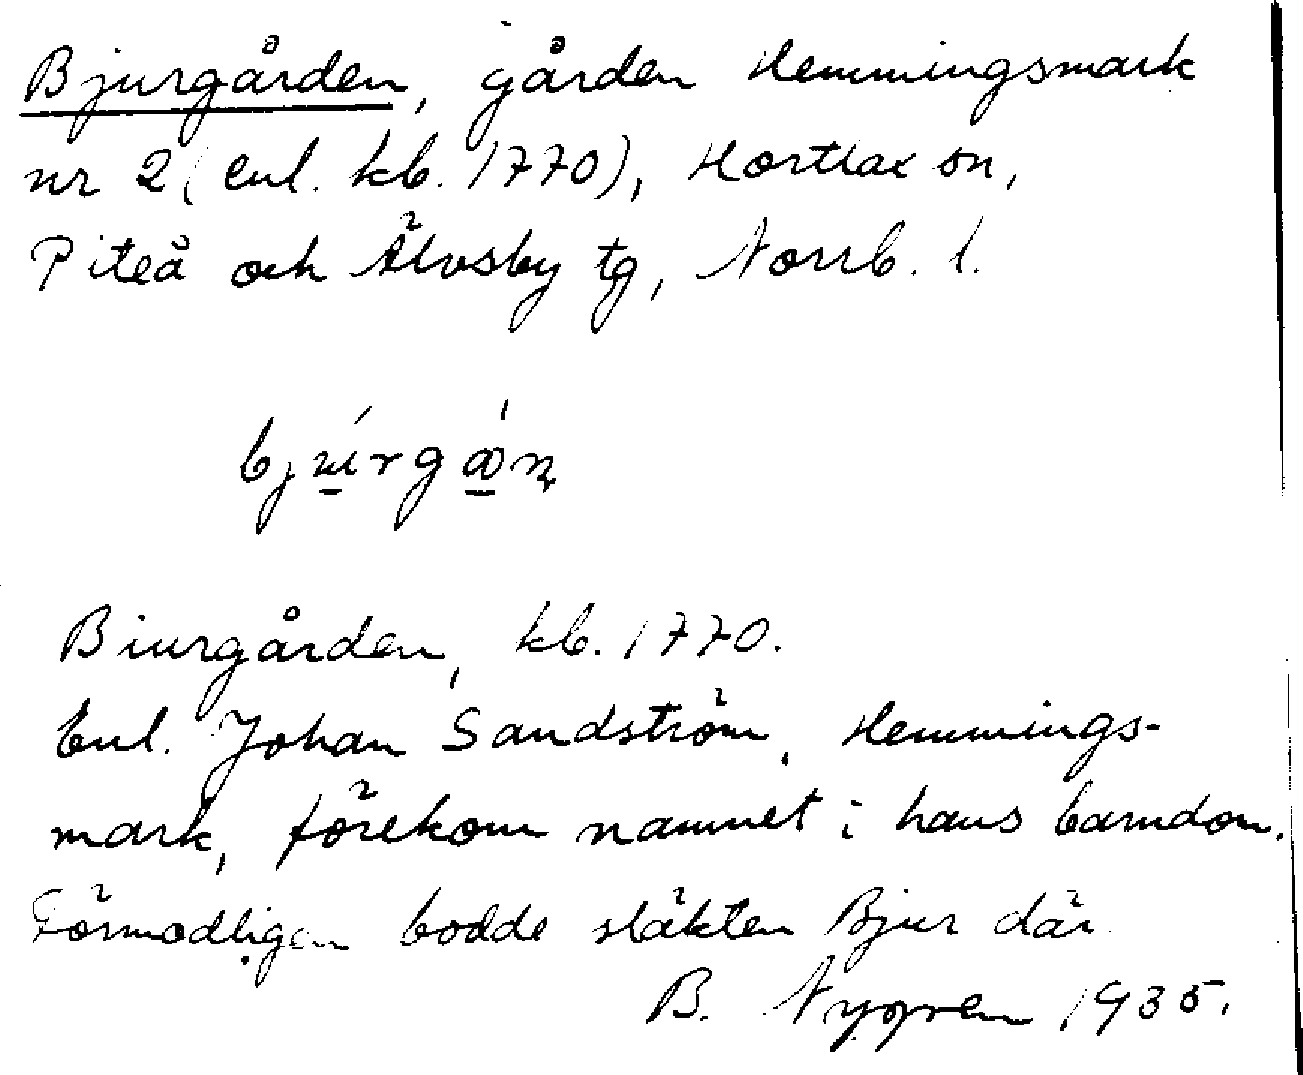 Bjurgården, gården Hemmingsmark
nr 2 (enl. kb. 1770), Hortlax sn,
Piteå och Älvsby tg, Norrb. l.
Biurgården, kb. 1770.
Enl. Johan Sandström, Hemmings-
mark, förekom namnet i hans barndom.
Förmodligen bodde släkten Bjur där
B. Nygren 1935.